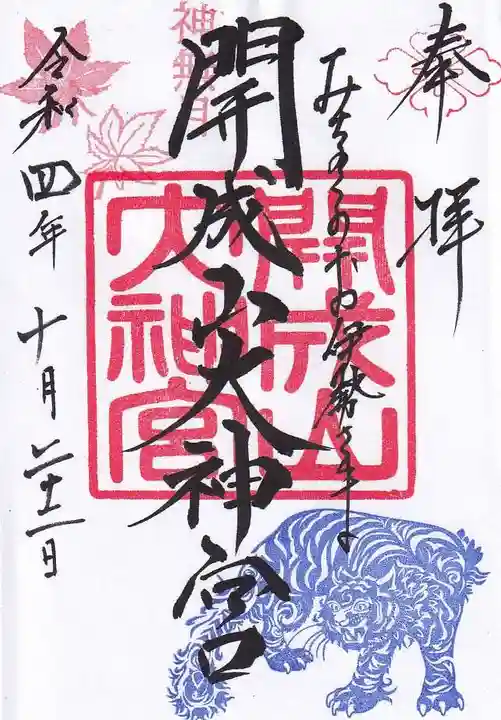 奉拝
みちのくのお伊勢さま
開成山大神宮
開成山大神宮
神無月
令和四年十月二十一日